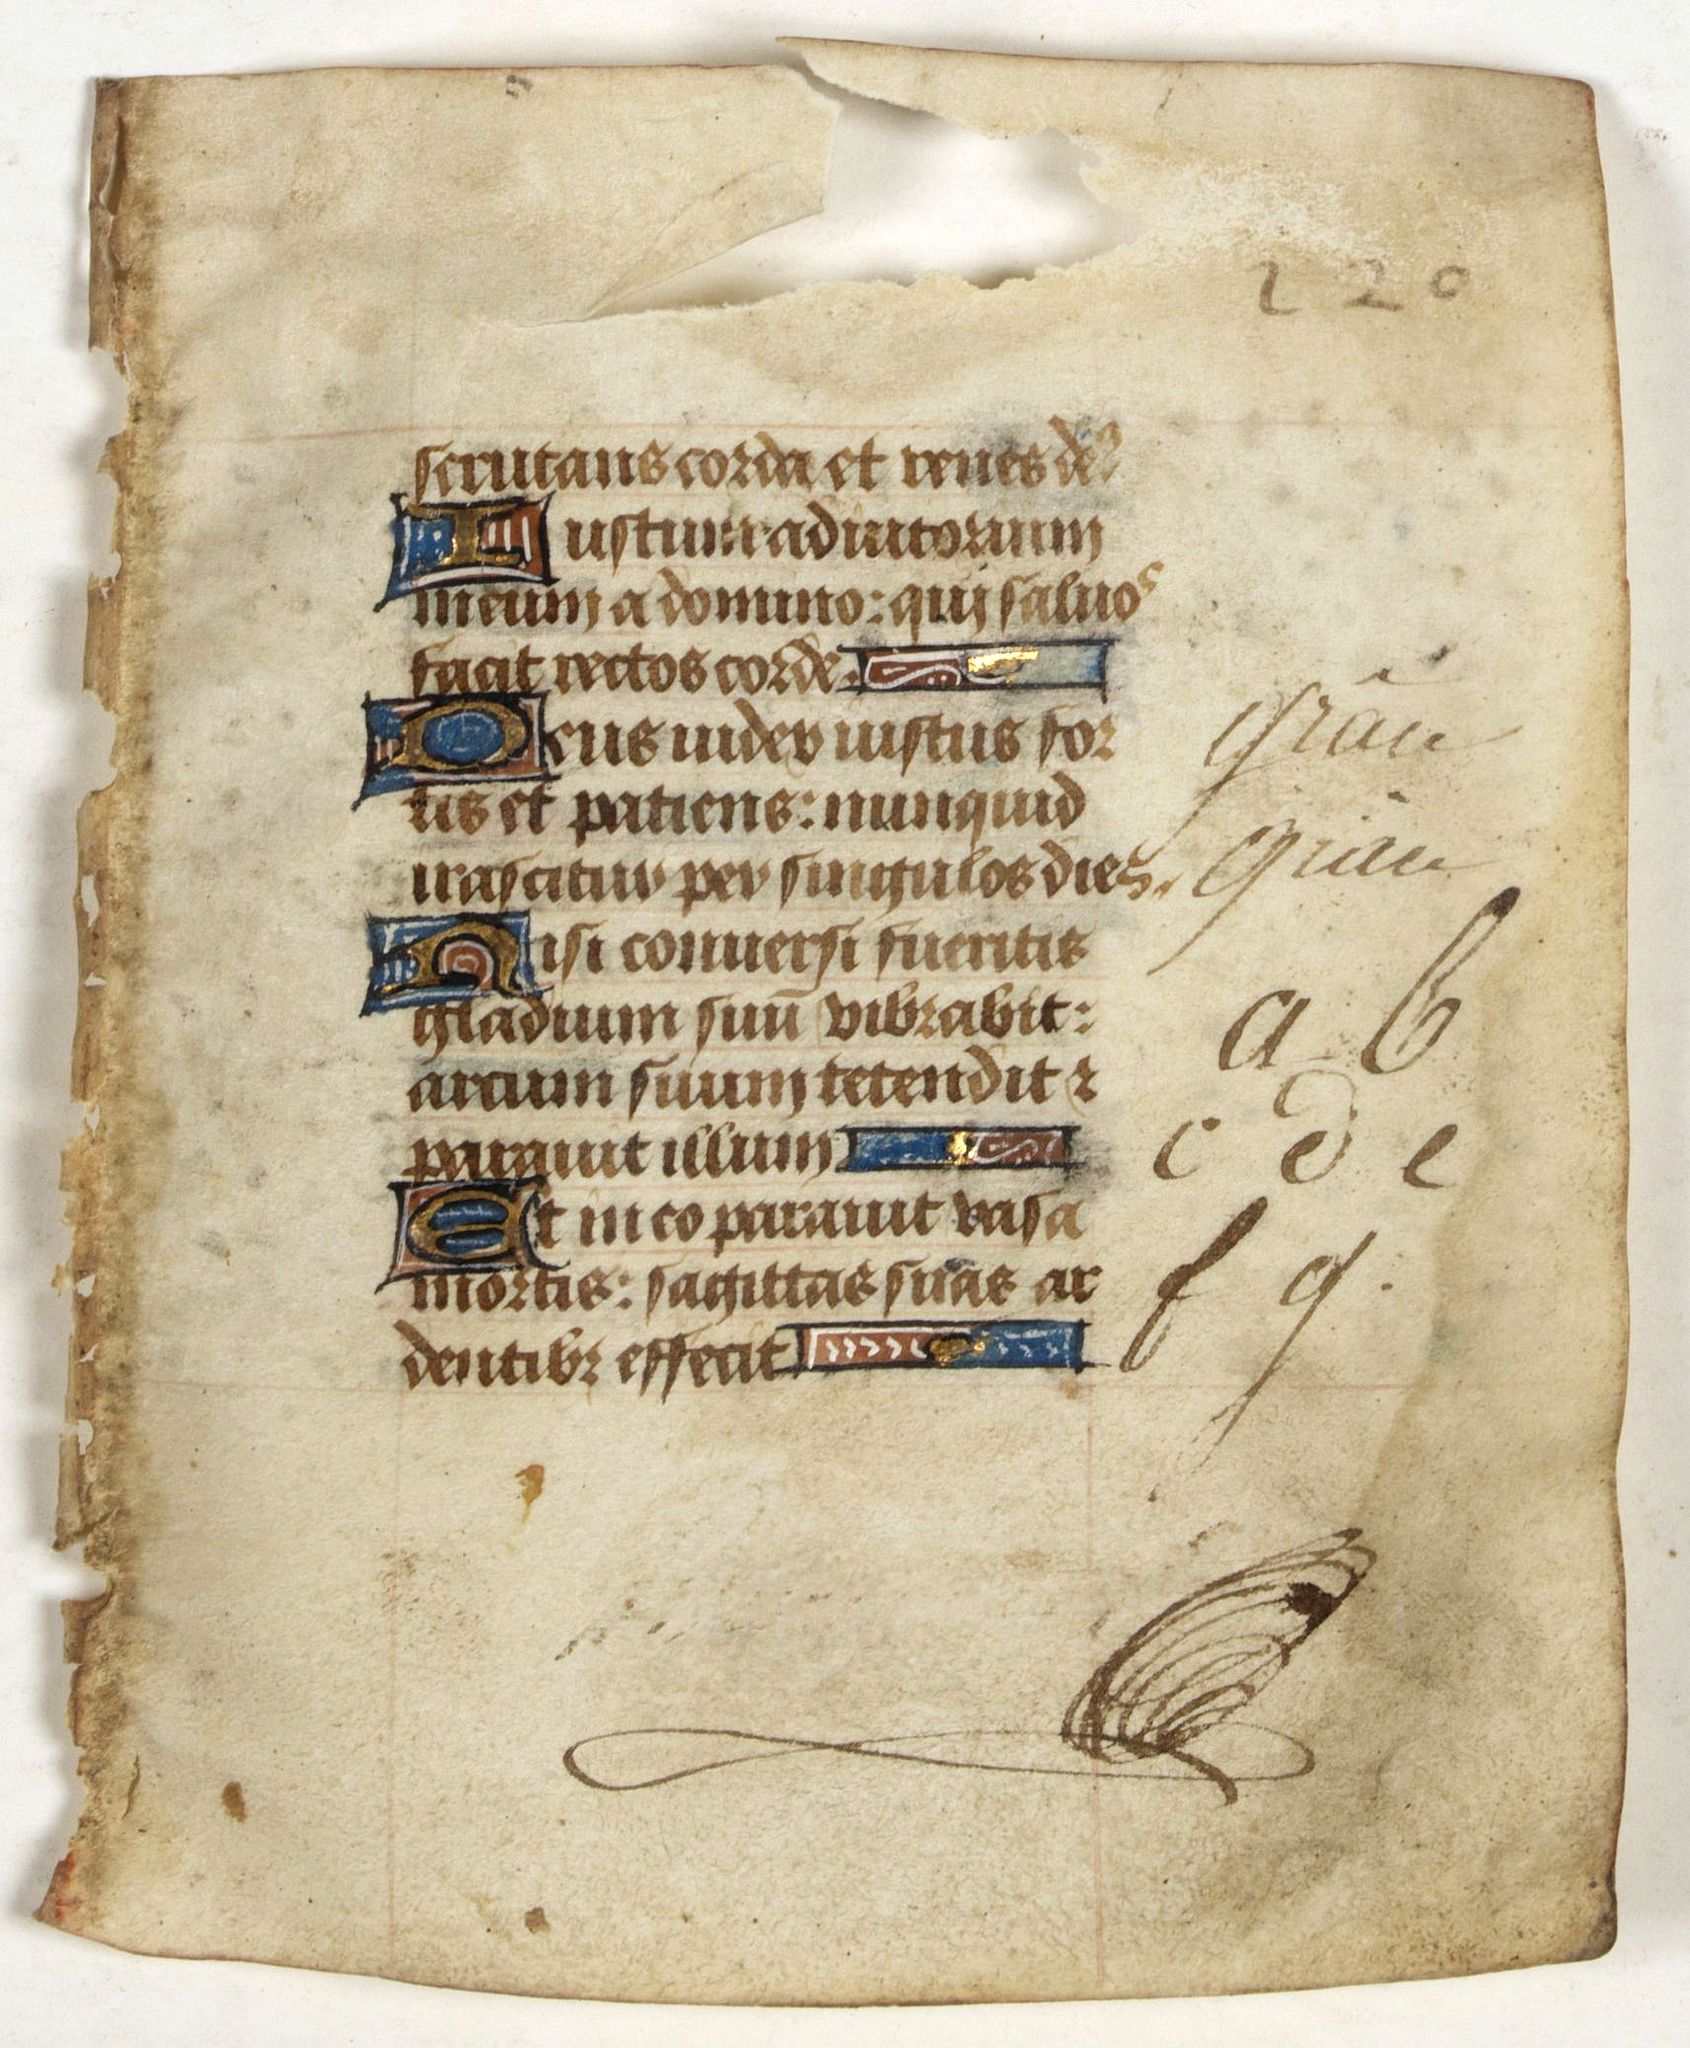 220
scrutans corda et renes de⁹
Iustum adiutorium
meum a domino: qui saluos
facit rectos corde.
Deus iudex iustus for
tis et patiens: nunquid
irascitur per singulos dies.
Nisi conuersi fueritis
gladium suū vibrabit:
arcum suum tetendit ⁊
parauit illum
Et in eo parauit vasa
mortis: sagittas suas ar
dentibꝫ effecit
a b
c d e
f g.